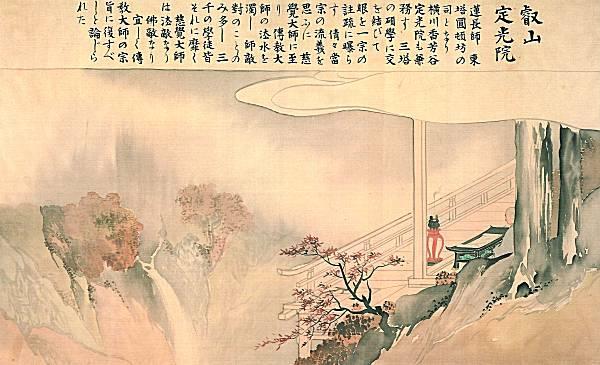 叡山
定光院
蓮長師 東
塔圓頓坊の
司となり
横川香芳谷
定光院も兼
務す 三塔
の碩學に交
を結びて
眼を一宗の
註疏に曝ら
す 倩々當
宗の流義を
思ふに 慈
覺大師に至
り 傳教大
師の法水を
濁し 師敵
対のことの
み多し 三
千の學徒皆
それに靡く
慈覺大師
は法敵なり
佛敵なり
宜しく傳
教大師の宗
旨に復すべ
しと論じら
れた